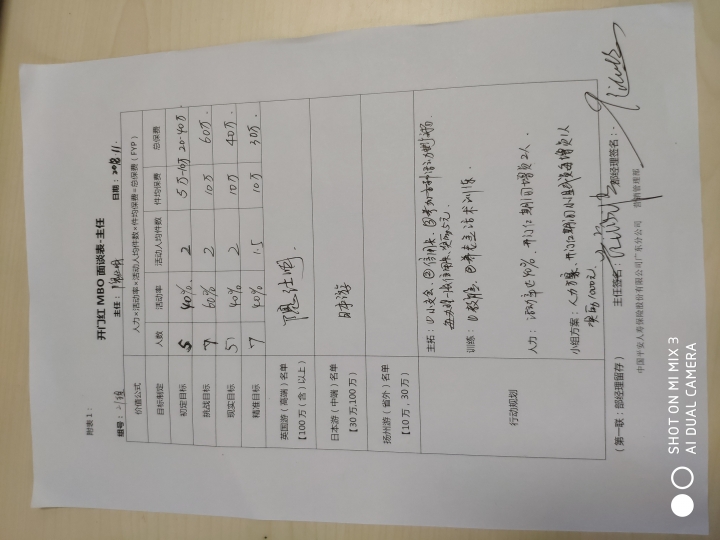 附表1：
开门红 MBO 面谈表-主任
组号： 主任： 日期：2018.11.
价值公式 人力×活动率×活动人均件数×件均保费=总保费（FYP）
目标制定 人数 活动率 活动人均件数 件均保费 总保费
初定目标 5 40% 2 5万-10万 20-40万.
挑战目标 7 60% 2 10万 60万.
现实目标 5 40% 2 10万 40万.
精准目标 7 40% 1.5 10万 30万.
英国游（高端）名单
【100万（含）以上】
日本游（中端）名单 日本游
【30万,100万）
扬州游（省外）名单
【10万，30万）
行动规划
主拓：①小交会、②信用卡、③
每办理一张信用卡,奖励5元.
训练：① ② 话术训练.
人力：活动率 40%，开门红期间增员2人.
小组方案：人力方案、开门红期间小组成员增员1人
奖励1000元.
（第一联：部经理留存） 主任签名： 部经理签名：
中国平安人寿保险股份有限公司广东分公司 营销管理部
SHOT ON MI MIX 3
AI DUAL CAMERA